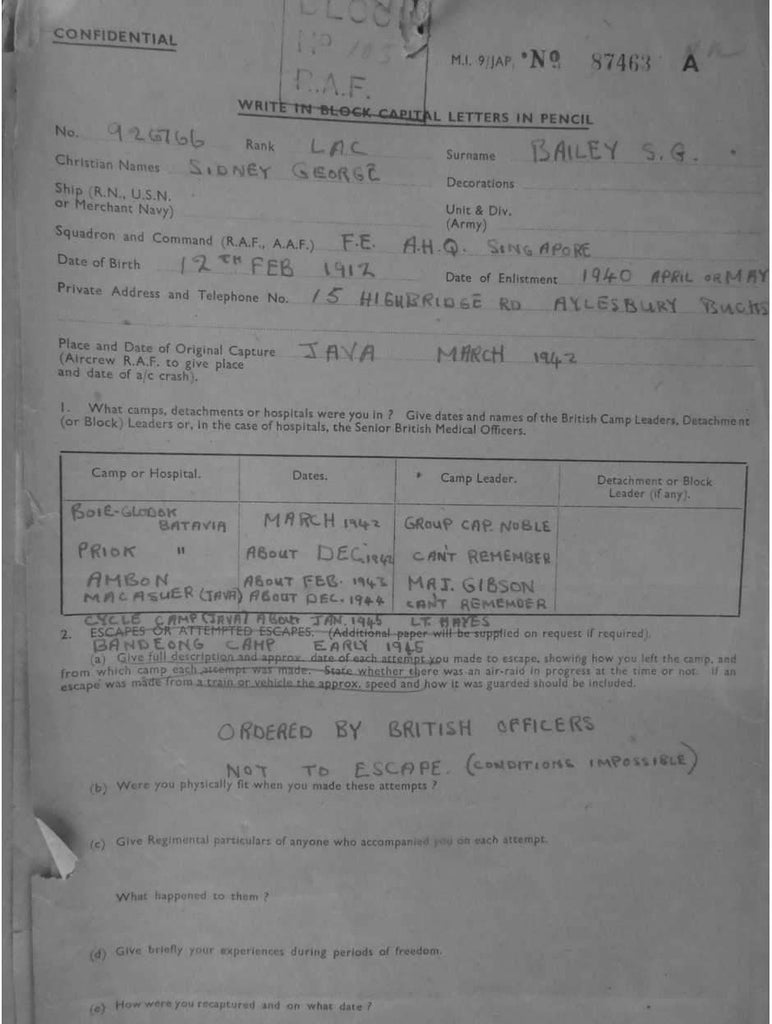 CONFIDENTIAL
R.A.F.
M.I. 9/JAP. No 87463 A
WRITE IN BLOCK CAPITAL LETTERS IN PENCIL
No. 926766 Rank LAC Surname BAILEY S.G.
Christian Names SIDNEY GEORGE Decorations
Ship (R.N., U.S.N.
or Merchant Navy) Unit & Div.
(Army)
Squadron and Command (R.A.F., A.A.F.) F.E. A.H.Q. SINGAPORE
Date of Birth 12TH FEB 1912 Date of Enlistment 1940 APRIL OR MAY
Private Address and Telephone No. 15 HIGHBRIDGE RD AYLESBURY BUCKS
Place and Date of Original Capture JAVA MARCH 1942
(Aircrew R.A.F. to give place
and date of a/c crash).
1. What camps, detachments or hospitals were you in ? Give dates and names of the British Camp Leaders, Detachment
(or Block) Leaders or, in the case of hospitals, the Senior British Medical Officers.
Camp or Hospital. Dates. Camp Leader. Detachment or Block
Leader (if any).
BOIE-GLODOK
BATAVIA MARCH 1942 GROUP CAP. NOBLE
PRIOK " ABOUT DEC. 1942 CAN'T REMEMBER
AMBON ABOUT FEB. 1943 MAJ. GIBSON
MACASUER (JAVA) ABOUT DEC. 1944 CAN'T REMEMBER
CYCLE CAMP (JAVA) ABOUT JAN. 1945 LT. HAYES
2. ESCAPES OR ATTEMPTED ESCAPES. (Additional paper will be supplied on request if required).
BANDEONG CAMP EARLY 1945
(a) Give full description and approx. date of each attempt you made to escape, showing how you left the camp, and
from which camp each attempt was made. State whether there was an air-raid in progress at the time or not. If an
escape was made from a train or vehicle the approx. speed and how it was guarded should be included.
ORDERED BY BRITISH OFFICERS
NOT TO ESCAPE. (CONDITIONS IMPOSSIBLE)
(b) Were you physically fit when you made these attempts ?
(c) Give Regimental particulars of anyone who accompanied you on each attempt.
What happened to them ?
(d) Give briefly your experiences during periods of freedom.
(e) How were you recaptured and on what date ?